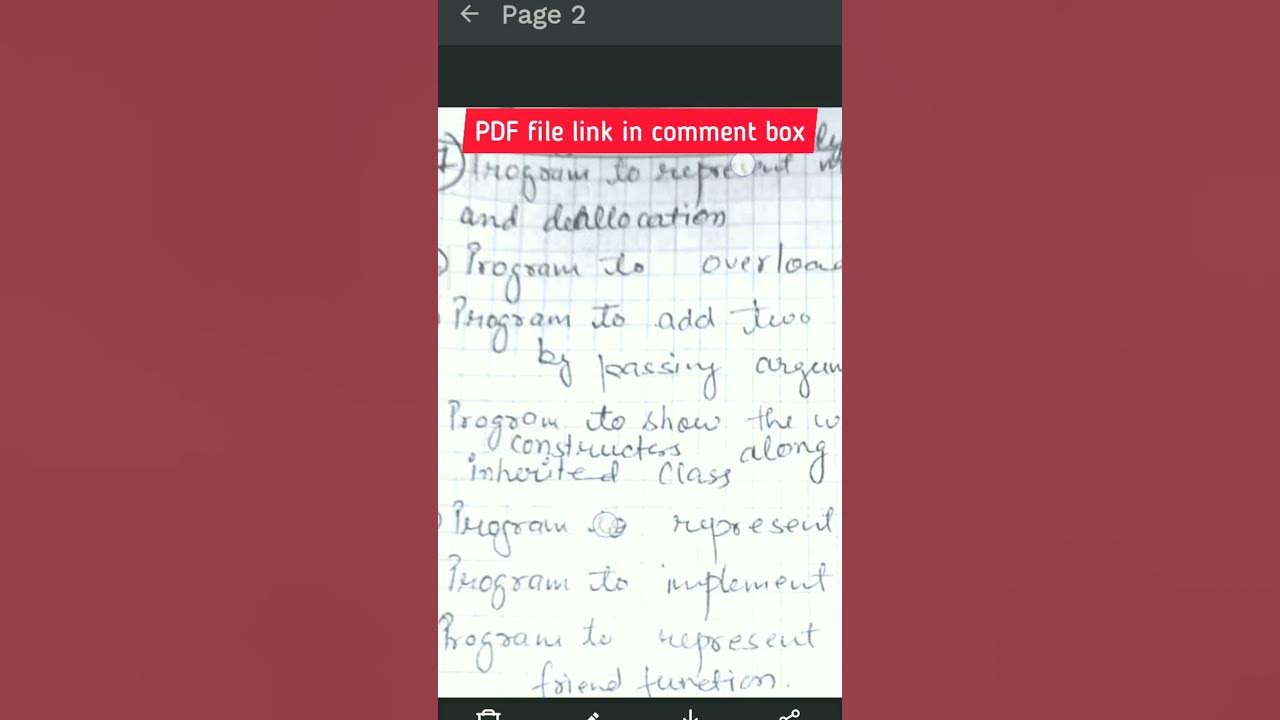 Page 2
PDF file link in comment box
Program to represent
and deallocation
Program to overload
Program to add two
by passing argum
Program to show the w
constructers along
inherited class
Program to represent
Program to implement
Program to represent
friend function.